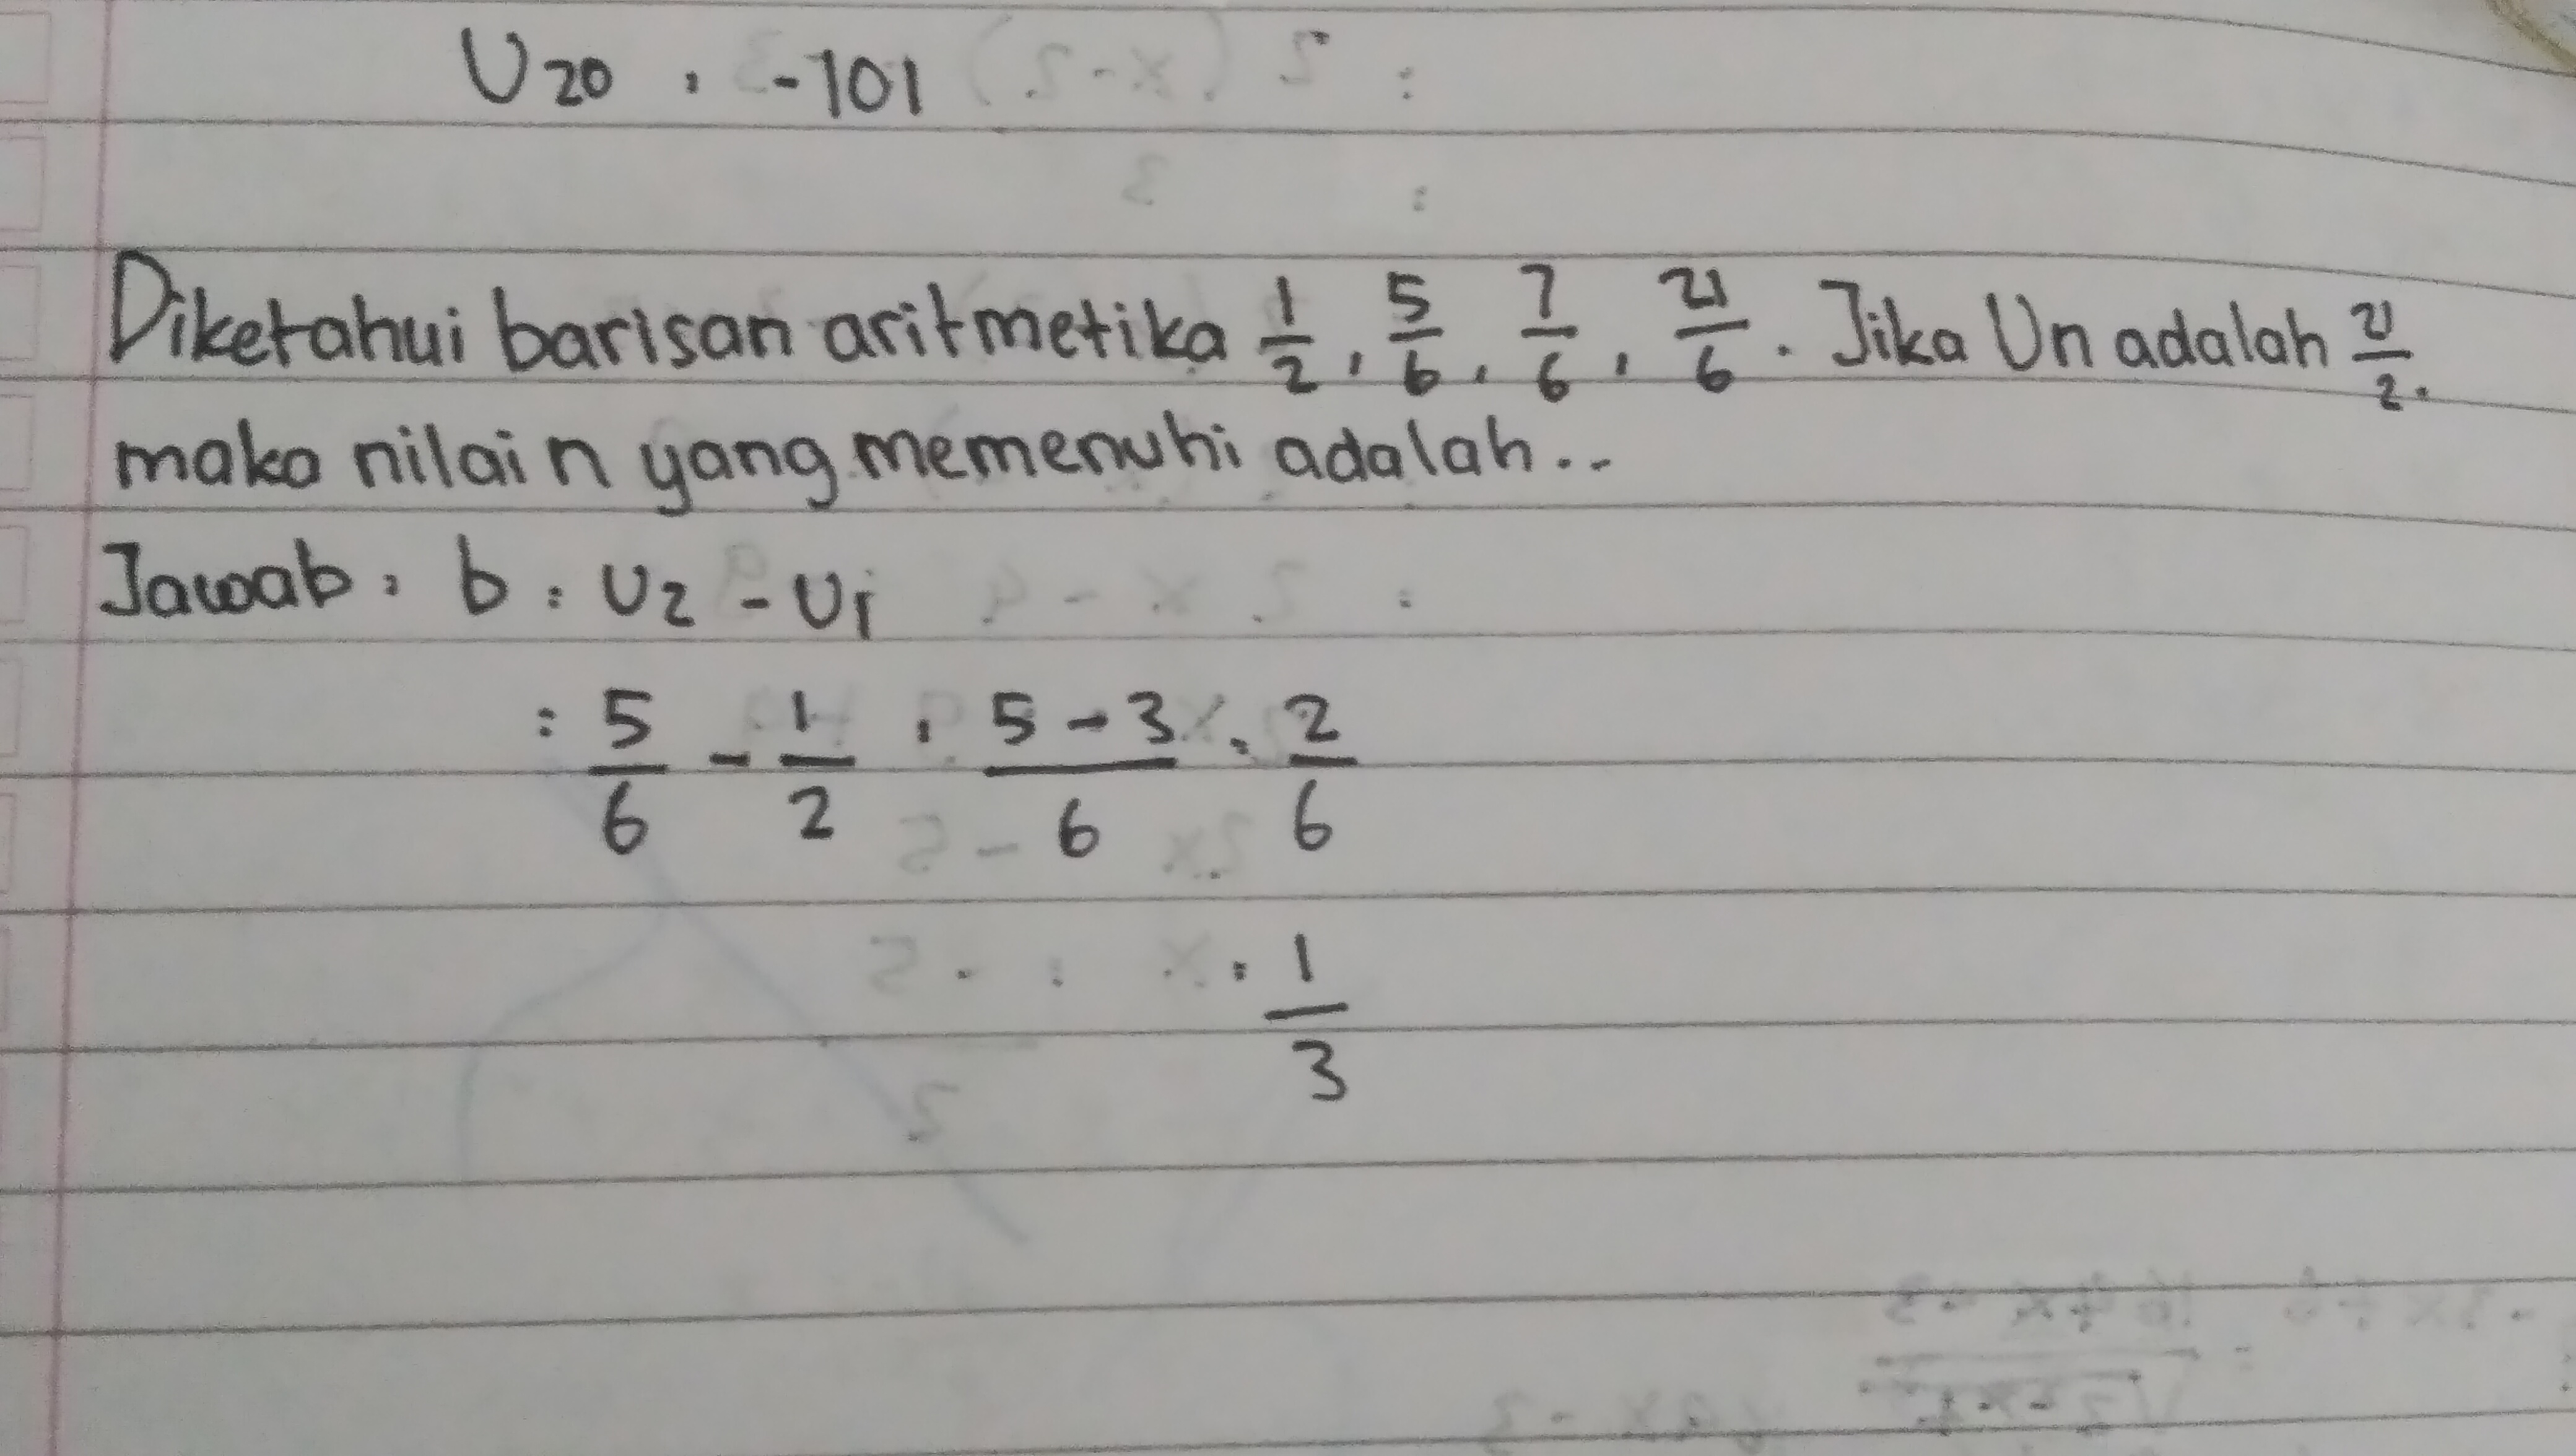 U20 : -101
Diketahui barisan aritmetika 1/2, 5/6, 7/6, 21/6. Jika Un adalah 21/2.
maka nilai n yang memenuhi adalah...
Jawab : b : U2 - U1
: 5/6 - 1/2 : 5 - 3/6 : 2/6
: 1/3